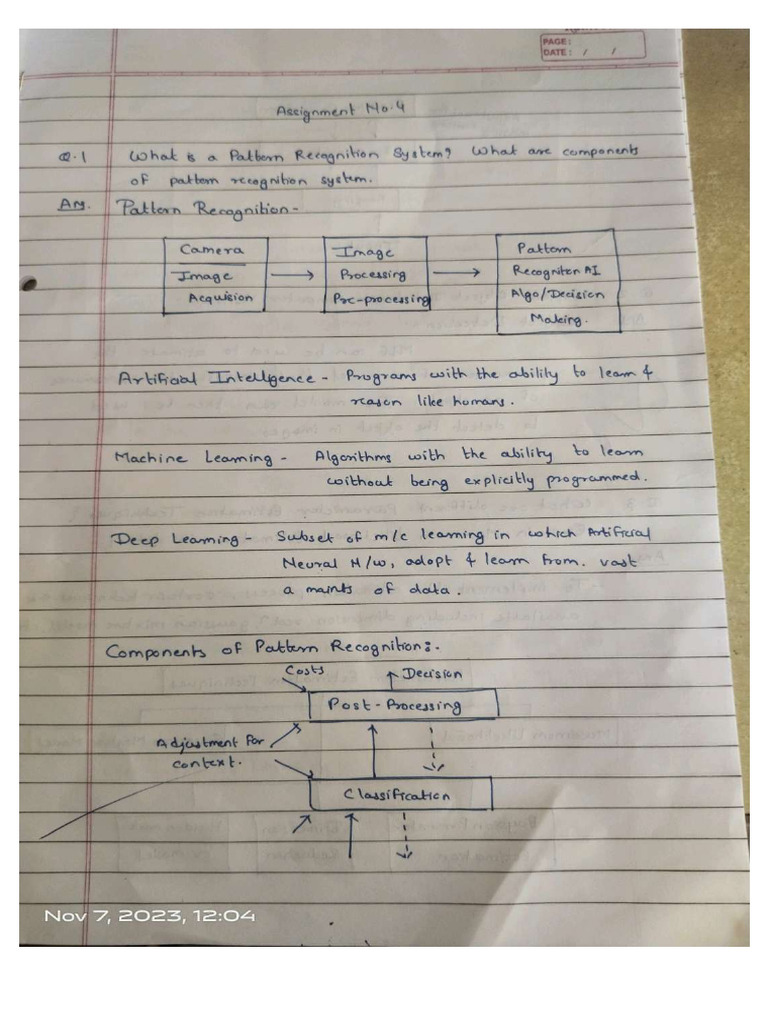 PAGE:
DATE: / /
Assignment No.4
Q.1 What is a Pattern Recognition System? What are components
of pattern recognition system.
Ans. Pattern Recognition -
Camera
Image
Acquision
Image
Processing
Pre-processing
Pattern
Recogniton AI
Algo/Decision
Making.
Artificial Intelligence - Programs with the ability to learn &
reason like humans.
Machine Learning - Algorithms with the ability to learn
without being explicitly programmed.
Deep Learning - Subset of m/c learning in which Artificial
Neural N/w, adopt & learn from. vast
a maints of data.
Components of Pattern Recognition:-
Costs
Decision
Post-Processing
Adjustment for
context.
Classification
Nov 7, 2023, 12:04